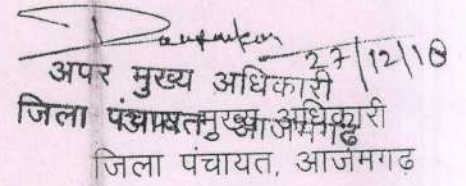 27/12/18
अपर मुख्य अधिकारी
जिला पंचायत आजमगढ़
अपर मुख्य अधिकारी
जिला पंचायत, आजमगढ़